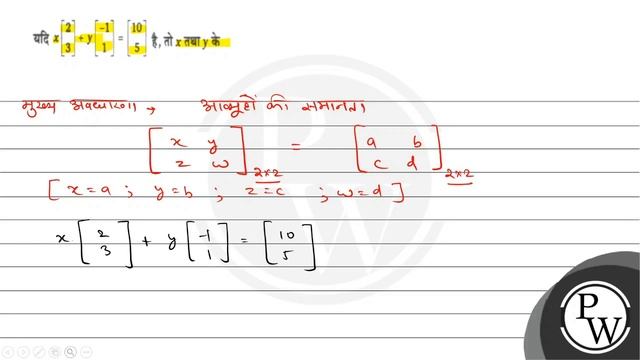 यदि x [2 3] + y [-1 1] = [10 5] है, तो x तथा y के
मुख्य अवधारणा → आव्यूहों की समानता
[x y z w] 2×2 = [a b c d] 2×2
[x = a ; y = b ; z = c ; w = d]
x [2 3] + y [-1 1] = [10 5]
P
W